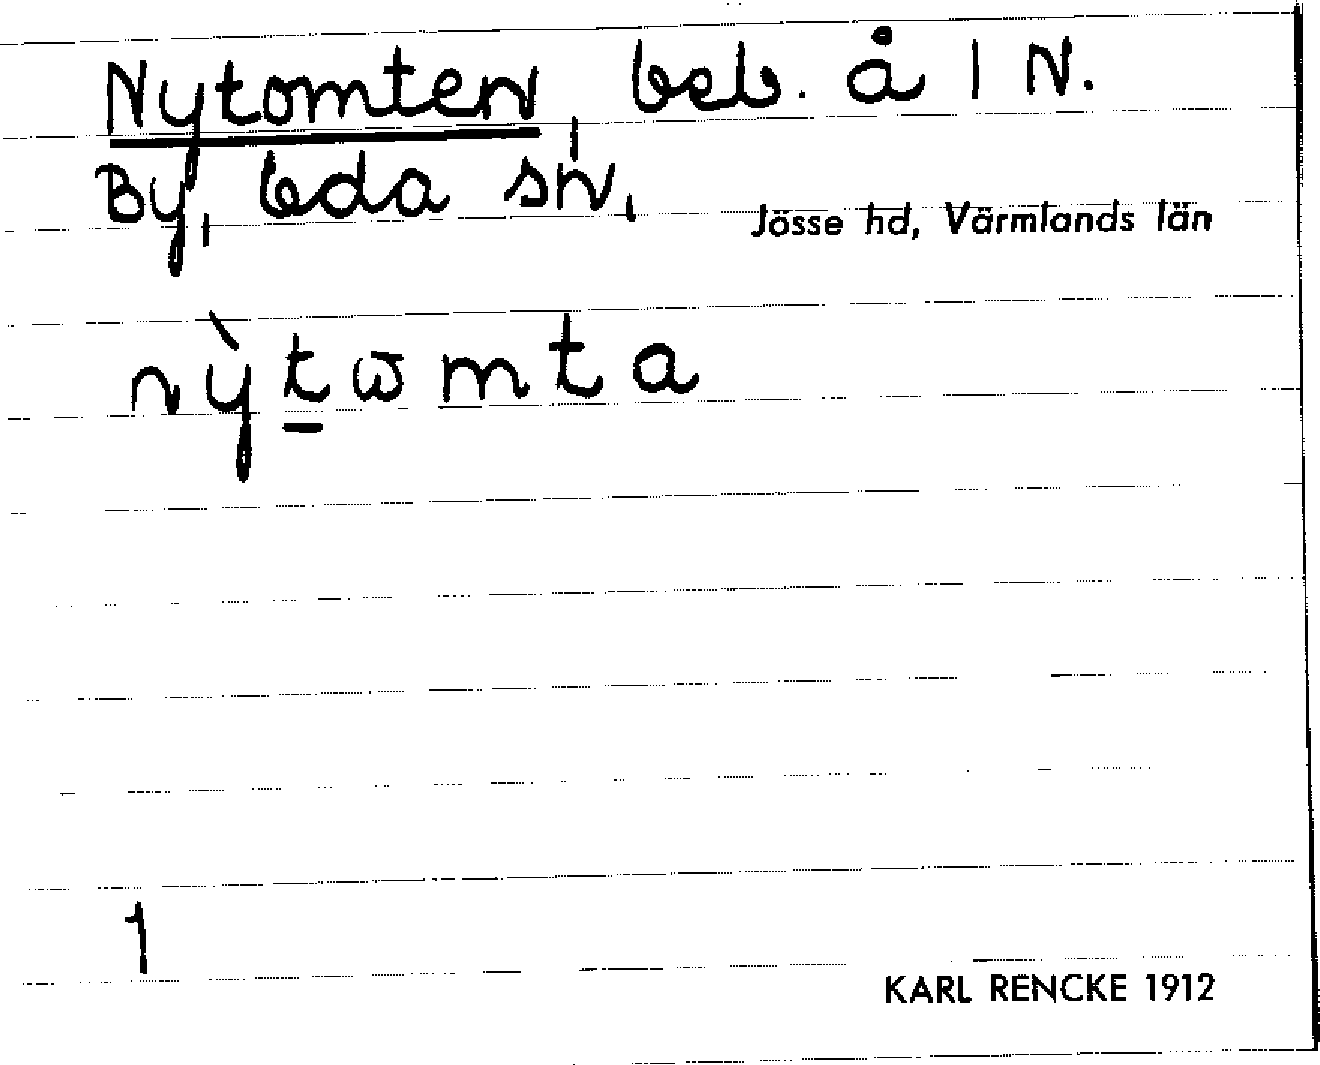 Nytomten, beb. å 1 N.
By, Eda sn,
Jösse hd, Värmlands län
nỳtωmta
1
KARL RENCKE 1912